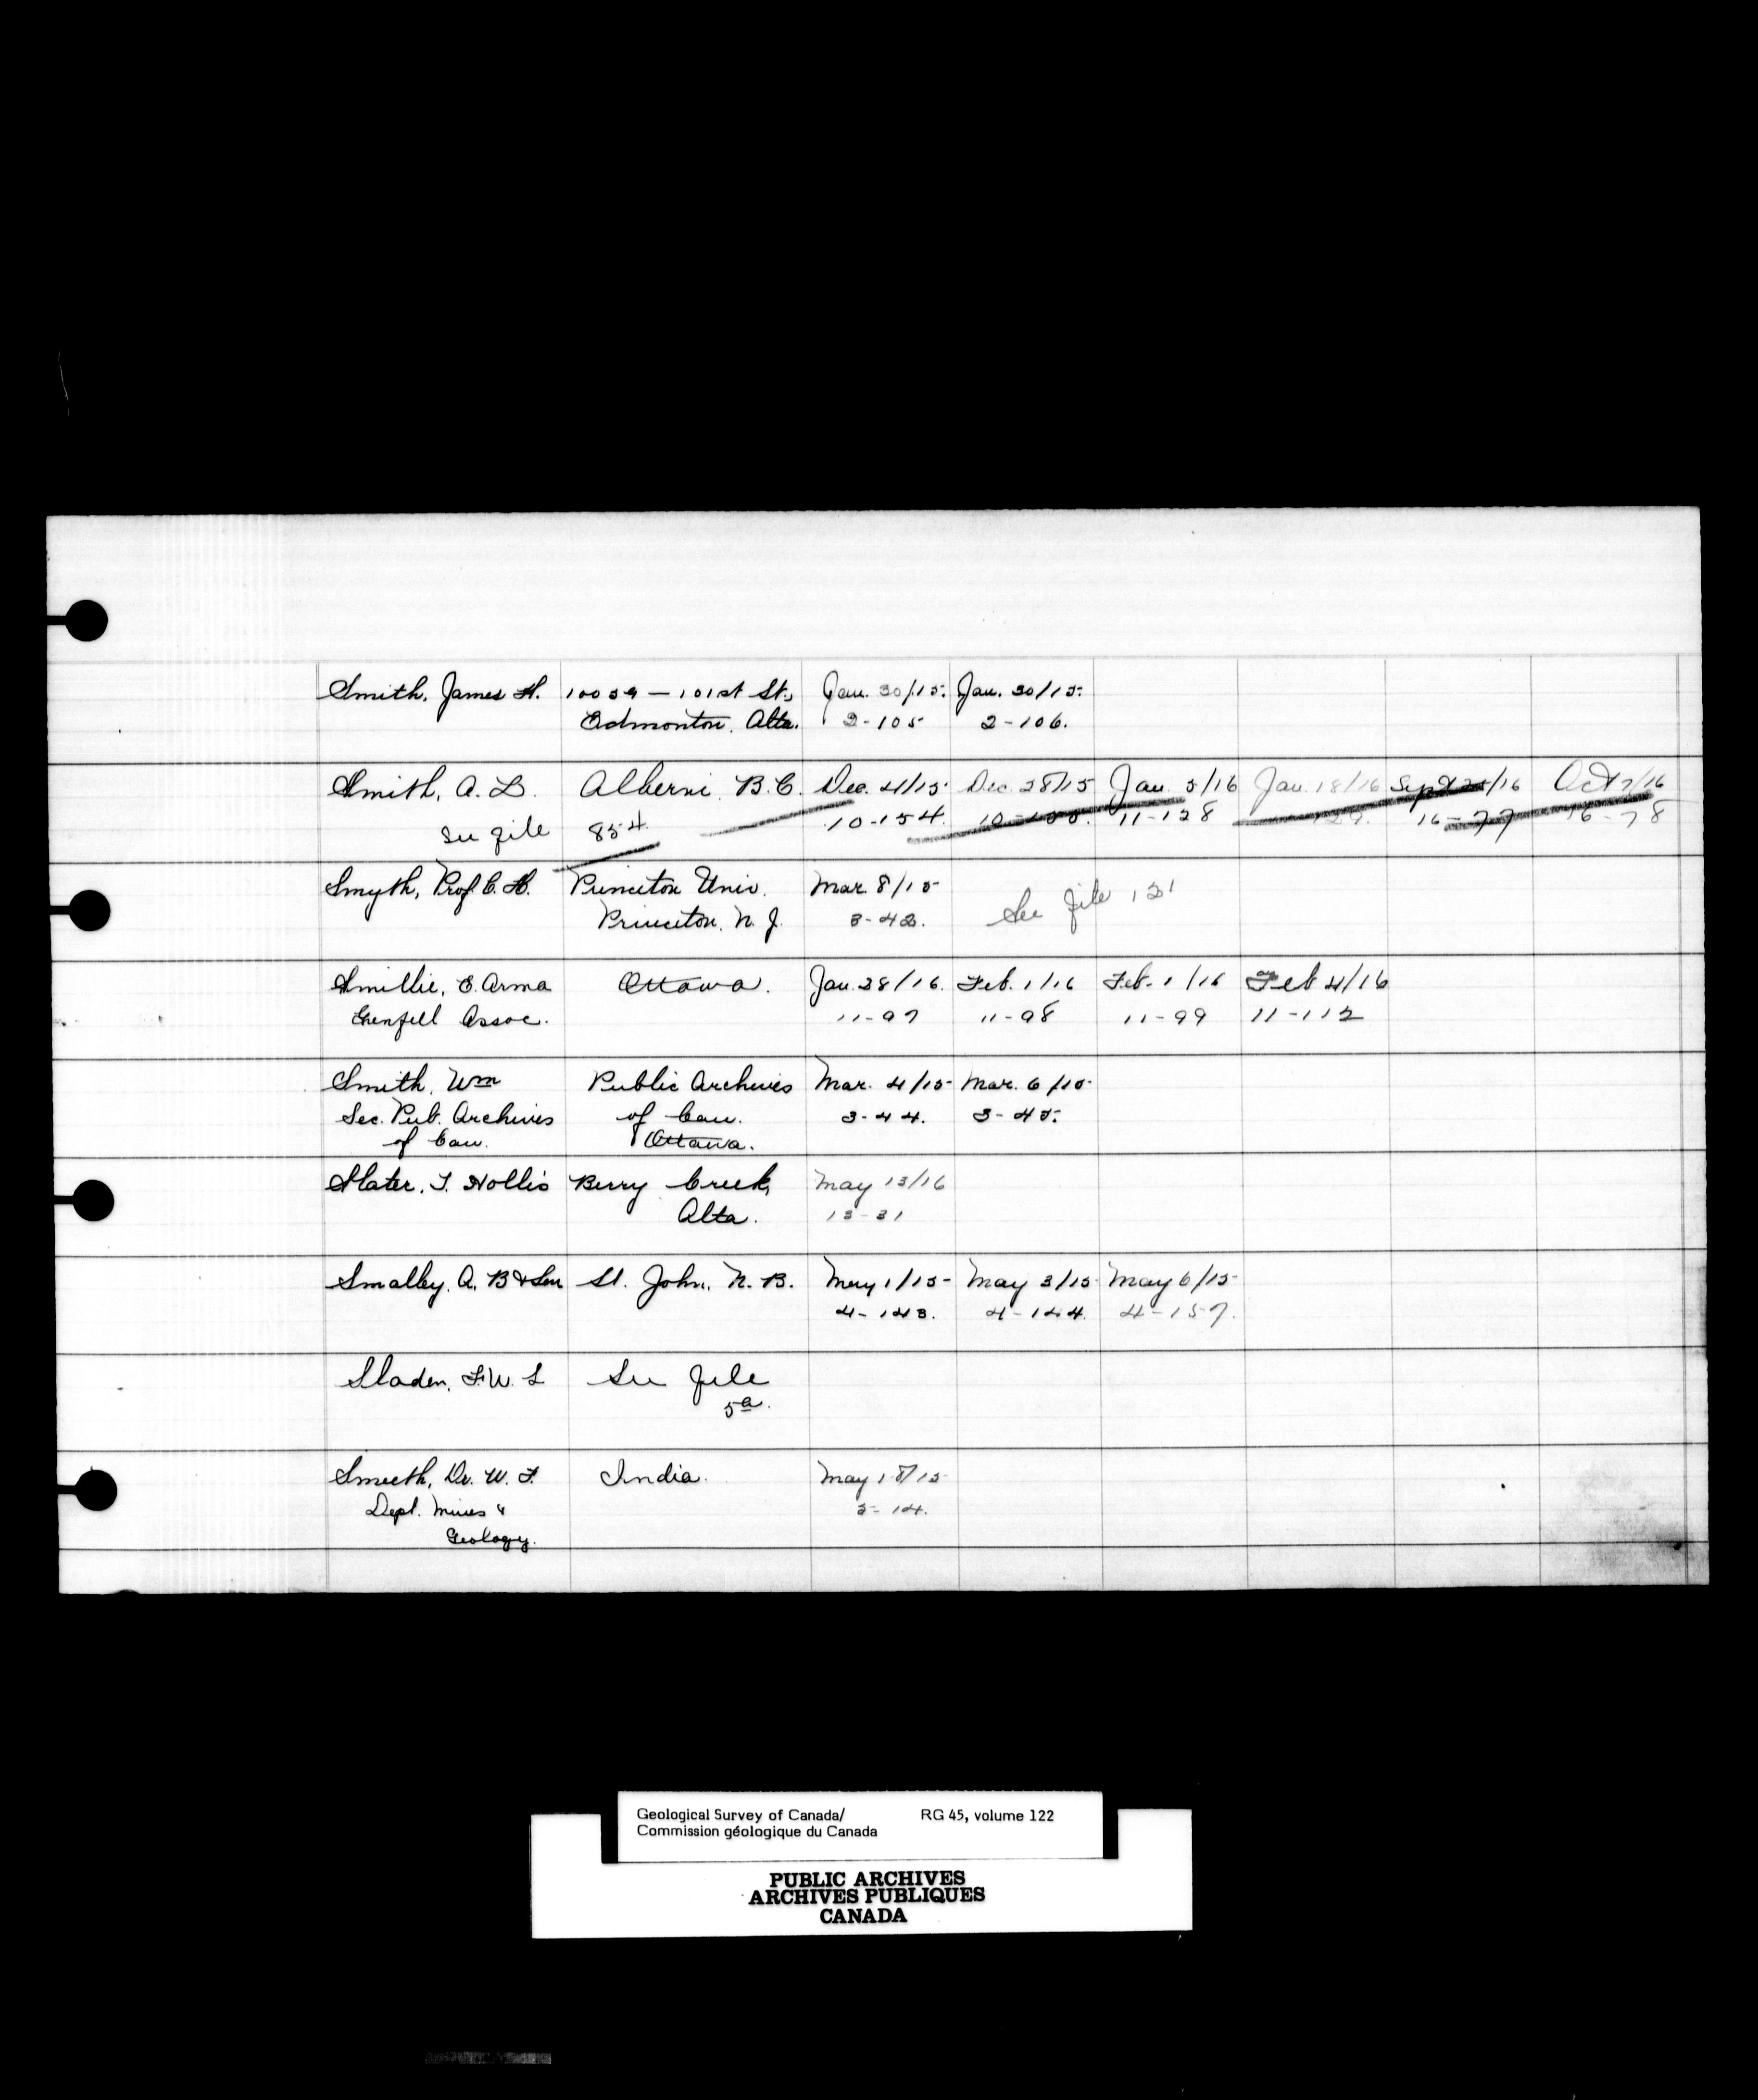 Smith, James H. 10059 — 101st St., Jan. 30/15. Jan. 30/15.
Edmonton, Alta. 2-105 2-106.
Smith, A. L. Alberni, B.C. Dec. 4/15. Dec. 28/15 Jan. 5/16 Jan. 18/16 Sept 21/16 Oct 7/16
See file 854. 10-154. 10-155. 11-128 129. 16-77 16-78
Smyth, Prof. C. H. Princeton Univ. Mar. 8/15
Princeton, N. J. 3-42. See file 121
Smillie, E. Arma Ottawa. Jan. 28/16. Feb. 1/16 Feb. 1/16 Feb 4/16
Grenfell Assoc. 11-97 11-98 11-99 11-112
Smith, Wm Public Archives Mar. 4/15- Mar. 6/15-
Sec. Pub. Archives of Can. 3-44. 3-45.
of Can. Ottawa.
Slater, T. Hollis Berry Creek, May 13/16
Alta. 13-31
Smalley, A. B & Son St. John, N. B. May 1/15- May 3/15 May 6/15-
4-143. 4-144. 4-157.
Sladen, F. W. L See file
5a.
Smeeth, Dr. W. F. India. May 18/15
Dept. Mines & 5-14.
Geology.
Geological Survey of Canada/ RG 45, volume 122
Commission géologique du Canada
PUBLIC ARCHIVES
ARCHIVES PUBLIQUES
CANADA